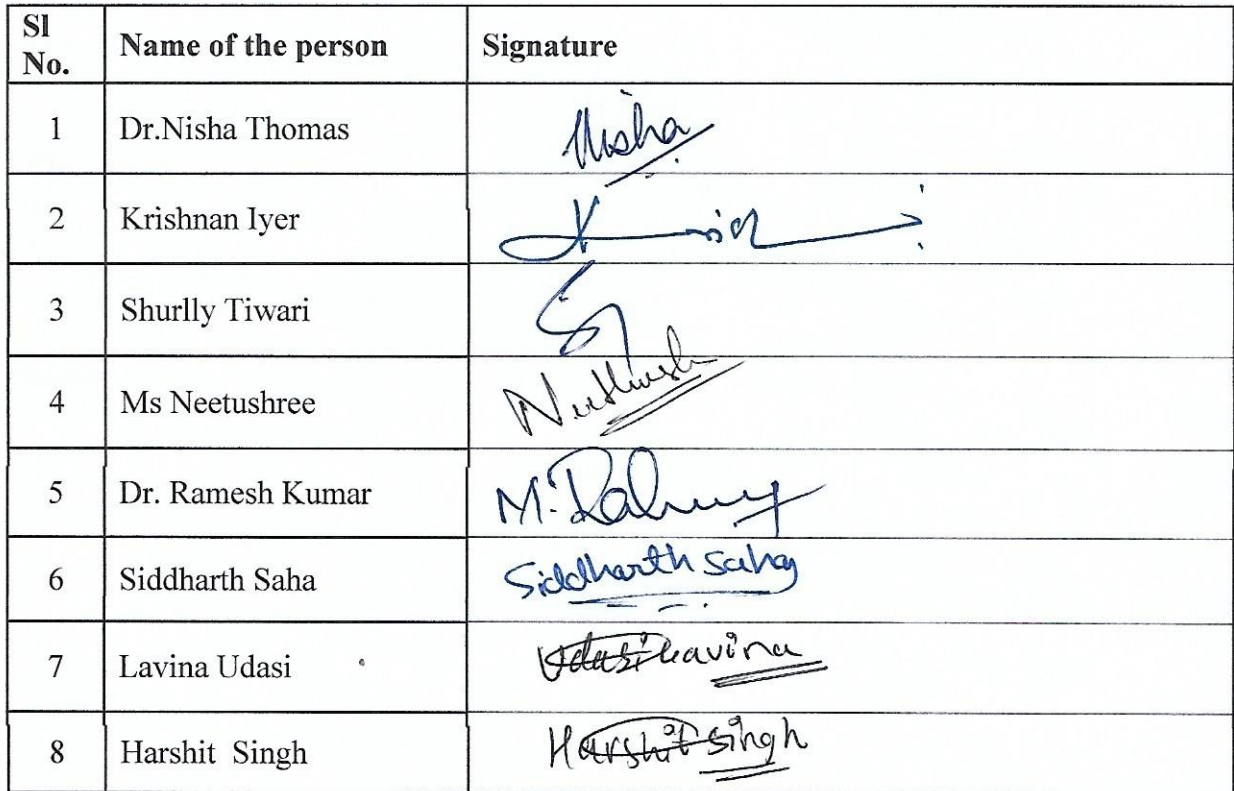 Sl No. Name of the person Signature
1 Dr.Nisha Thomas Nisha
2 Krishnan Iyer
3 Shurlly Tiwari
4 Ms Neetushree
5 Dr. Ramesh Kumar M.
6 Siddharth Saha Siddharth Saha
7 Lavina Udasi Udasi Lavina
8 Harshit Singh Harshit Singh